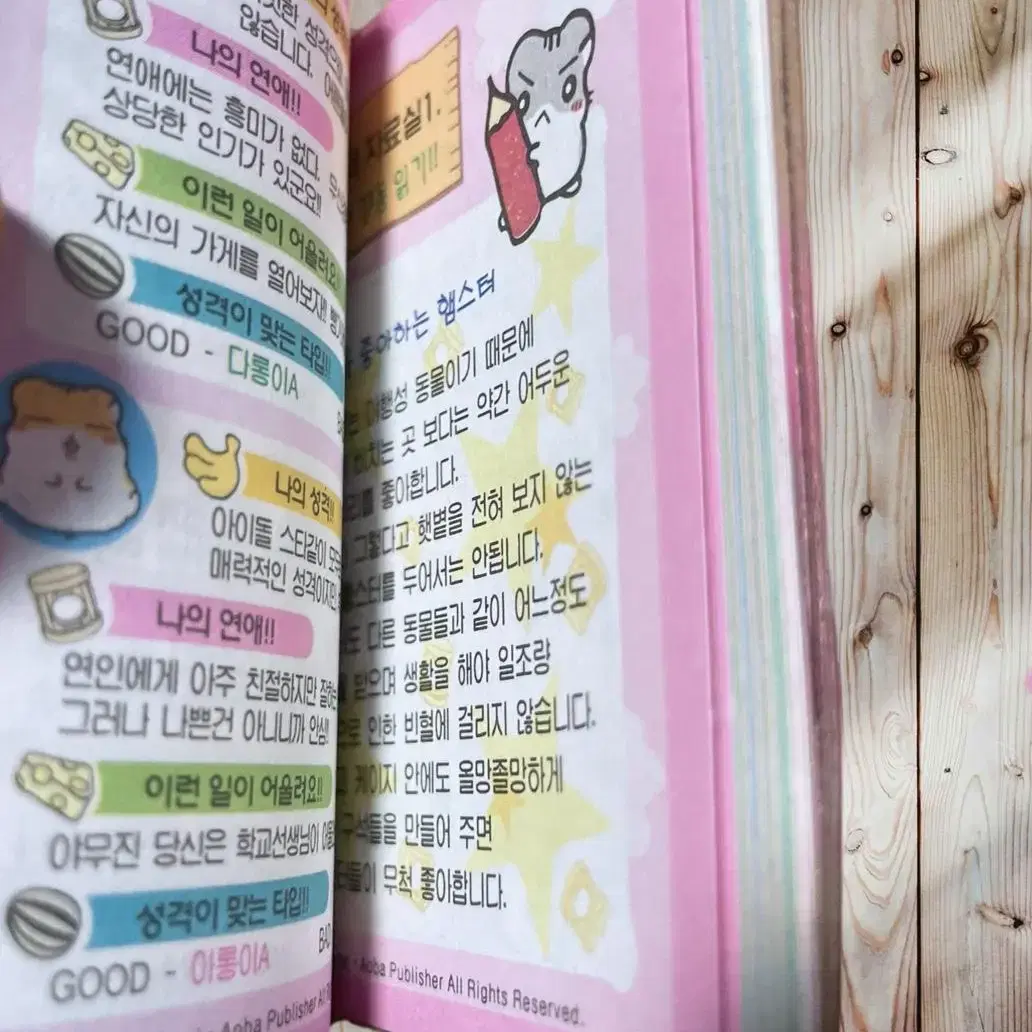 않습니다.
나의 연애!!
연애에는 흥미가 없다.
상당한 인기가 있군요!!
이런 일이 어울려요!!
자신의 가게를 열어보자!!
성격이 맞는 타입!!
GOOD - 다롱이A
나의 성격!!
아이돌 스타같이
매력적인 성격이지만
나의 연애!!
연인에게 아주 친절하지만
그러나 나쁜건 아니니까 안심!!
이런 일이 어울려요!!
야무진 당신은 학교선생님이
성격이 맞는 타입!!
GOOD - 아롱이A
Aoba Publisher
자료실1.
읽기!!
좋아하는 햄스터
야행성 동물이기 때문에
곳 보다는 약간 어두운
좋아합니다.
그렇다고 햇볕을 전혀 보지 않는
두어서는 안됩니다.
다른 동물들과 같이 어느정도
받으며 생활을 해야 일조량
인한 빈혈에 걸리지 않습니다.
케이지 안에도 올망졸망하게
만들어 주면
무척 좋아합니다.
Aoba Publisher All Rights Reserved.